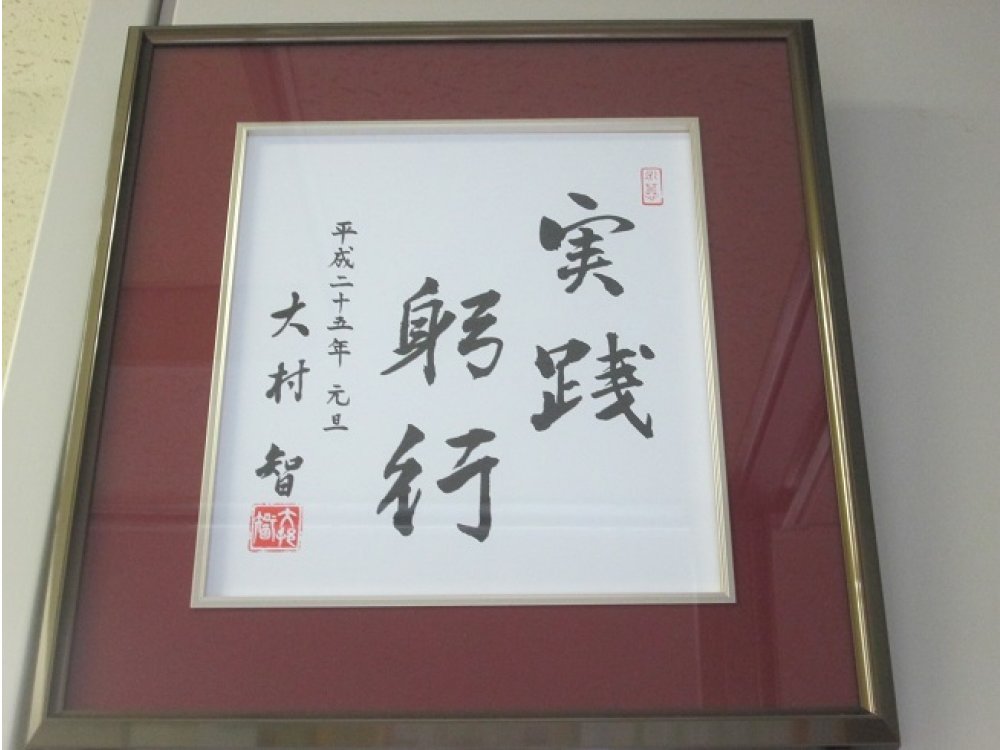 実践
躬行
平成二十五年 元旦
大村 智